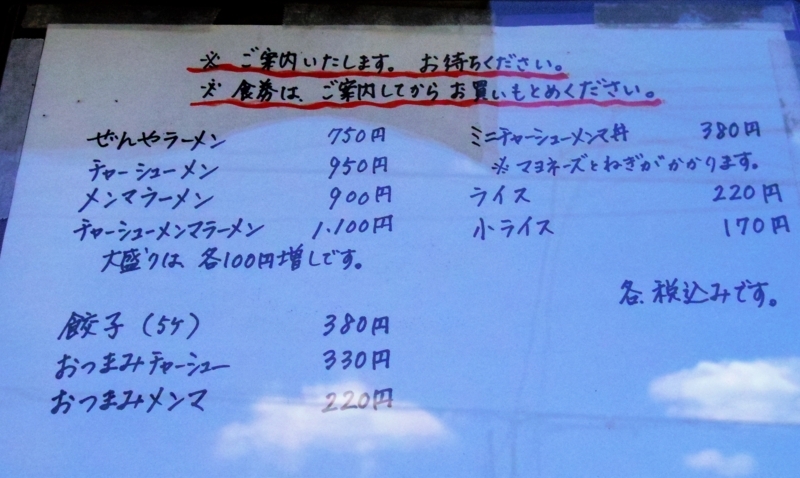 ※ ご案内いたします。 お待ちください。
※ 食券は、ご案内してからお買いもとめください。
ぜんやラーメン 750円
チャーシューメン 950円
メンマラーメン 900円
チャーシューメンマラーメン 1,100円
大盛りは、各100円増しです。
餃子(5ケ) 380円
おつまみチャーシュー 330円
おつまみメンマ 220円
ミニチャーシューメンマ丼 380円
※ マヨネーズとねぎがかかります。
ライス 220円
小ライス 170円
各、税込みです。